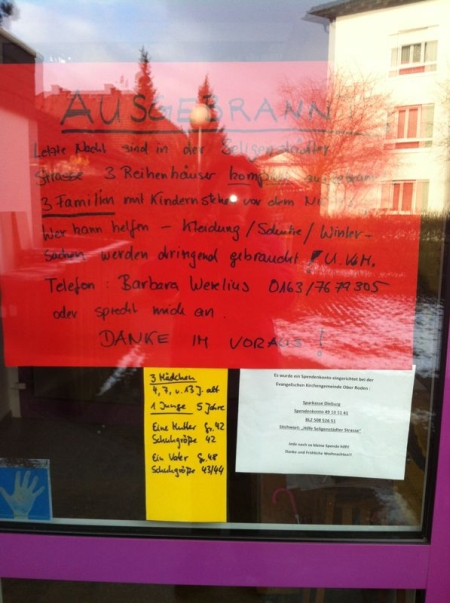 AUSGEBRANNT
Letzte Nacht sind in der Seligenstädter
Strasse 3 Reihenhäuser komplett
3 Familien mit Kindern stehen vor dem
Wer kann helfen - Kleidung / Schuhe / Winter-
Sachen werden dringend gebraucht U.V.M.
Telefon : Barbara Werelius 0163/7679305
oder sprecht mich an.
DANKE IM VORAUS !
3 Mädchen
4, 7, u. 13 J. alt
1 Junge 5 Jahre
Eine Mutter Gr. 42
Schuhgröße 42
Ein Vater Gr. 48
Schuhgröße 43/44
Es wurde ein Spendenkonto eingerichtet bei der
Evangelischen Kirchengemeinde Ober Roden :
Sparkasse Dieburg
Spendenkonto
BLZ 508 526 51
Stichwort: „Hilfe Seligenstädter Strasse“
Jede noch so kleine Spende hilft!
Danke und Fröhliche Weihnachten!!